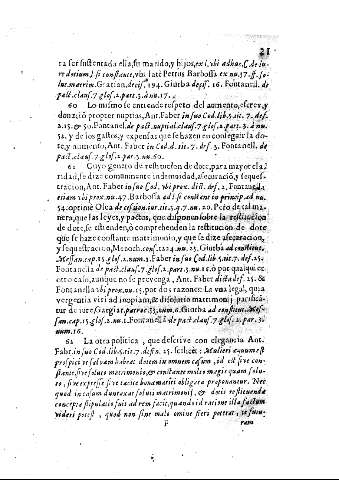 21
ta ser sustentada ella, su marido, y hijos, ex l. vbi adhuc, C. de iu-
re dotium, l. si constante, vbi late Petrus Barbossa ex nu. 37. ff. so-
lut. matrim. Gratian. decis. 194. Giurba decis. 16. Fontanel. de
pact. claus. 7. glos. 2. part. 3. nu. 17.
60 Lo mismo se entiende respeto del aumento, escrex, y
donaciò propter nuptias, Ant. Faber in suo Cod. lib. 5. tit. 7. def.
2. 15. & 50. Fontanel. de pact. nuptial. claus. 7. glos. 2. part. 3. nu.
52. y de los gastos, y expensas que se hazen en conseguir la do-
te, y aumento, Ant. Faber in Cod. tit. 7. def. 5. Fontanel. de
pact. claus. 7. glos. 2. part. 3. nu. 60.
61 Cuyo genero de restitucion de dote, para mayor cla-
ridad, se dize comunmente indemnidad, asseguracion, y seques-
tracion, Ant. Faber in suo Cod. vbi prox. dict. def. 2. Fontanella
etiam vbi prox. nu. 47. Barbosa ad l. si constante in princip. ad nu.
54. optimè Olea de cession. iur. tit. 3. q. 7. nu. 20. Pero de tal ma-
nera, que las leyes, y pactos, que disponen sobre la restitucion
de dote, se estienden, ò comprehenden la restitucion de dote
que se haze constante matrimonio, y que se dize asseguracion,
y sequestracion, Menoch. cons. 1224. nu. 25. Giurba ad constitut.
Messan. cap. 15. glos. 2. num. 3. Faber in suo Cod. lib. 5. tit. 7. def. 25.
Fontanella de pact. claus. 7. glos. 2. part. 3. nu. 16. ò por qualquier
otro caso, aunque no se prevenga, Ant. Faber dicta def. 25. &
Fontanella vbi prox. nu. 15. por dos razones: La vna legal, quia
vergentia viri ad inopiam, & dissolutio matrimonij parifica-
tur de iure, Gargiar. patroc. 33. num. 6. Giurba ad constitut. Mes-
san. cap. 15. glos. 2. nu. 1. Fontanella de pact. claus. 7. glos. 2. par. 3.
num. 16.
62 La otra politica, que descrive con elegancia Ant.
Fab. in suo Cod. lib. 5. tit. 7. defin. 25. scilicet: Mulieri æquum est
prospici vt salvam habeat dotem suam, id est sive con-
stante, sive soluto matrimonio, & constante multo magis quam solu-
to, sive expresse sive tacite bona mariti obligata proponantur. Nec
quod in casum dumtaxat soluti matrimonij, & dotis restituendæ
concepta stipulatio fuit ad rem facit, quando id ratione illa factum
videri potest, quod non sine malo omine fieri potuit, vt futu-
F
ram